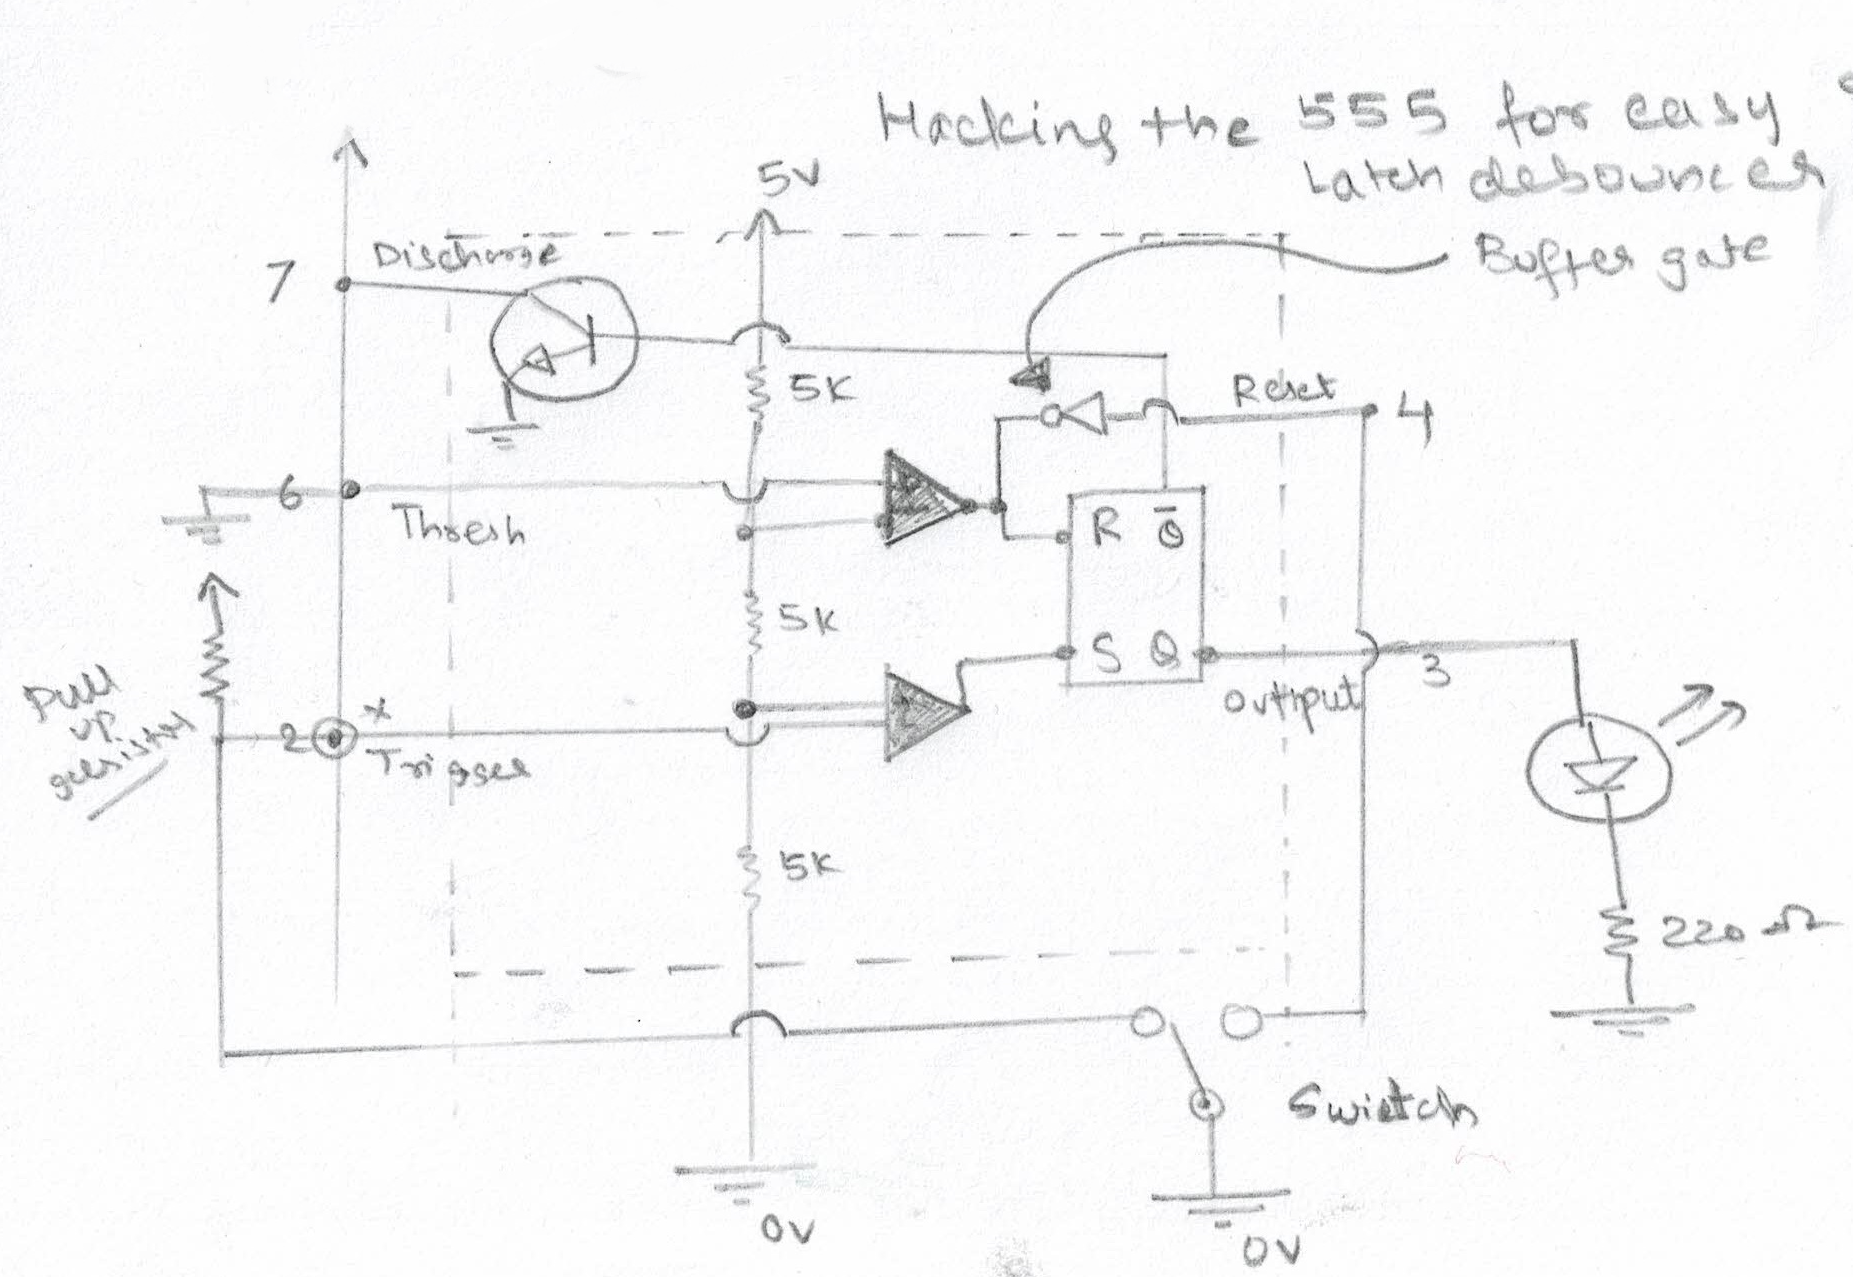 Hacking the 555 for easy
Latch debouncer
5V
Buffer gate
7
Discharge
5K
Reset
4
6
Thresh
R Q̅
5K
S Q
3
output
Pull
up
2
x
Trigger
5K
220 Ω
Swietch
0V
0V